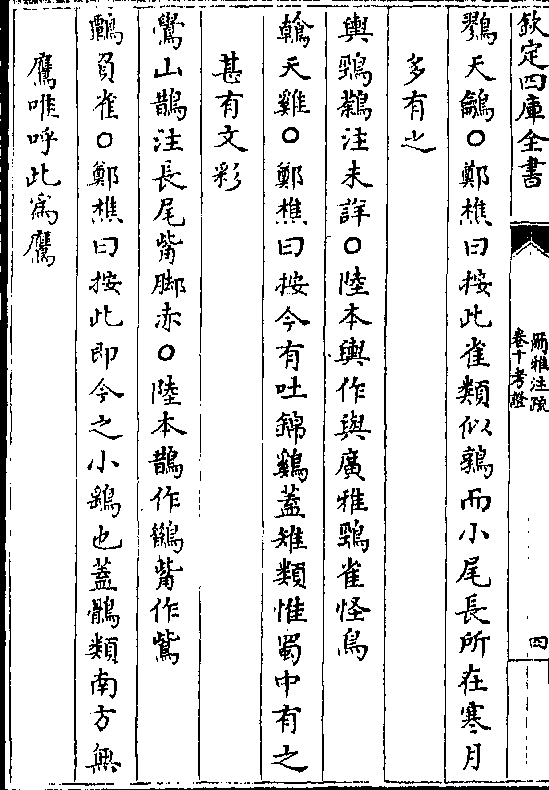 欽定四庫全書
爾雅注疏
卷十考證
四
鷚天鸙○鄭樵曰按此雀類似鶉而小尾長所在寒月
多有之
輿鵛鷋注未詳○陸本輿作與廣雅鵛雀怪鳥
鶾天雞○鄭樵曰按今有吐錦鷄蓋雉類惟蜀中有之
甚有文彩
鷽山鵲注長尾觜脚赤○陸本鵲作䧿觜作鴜
鸇負雀○鄭樵曰按此即今之小鷂也蓋鶻類南方無
鷹唯呼此為鷹